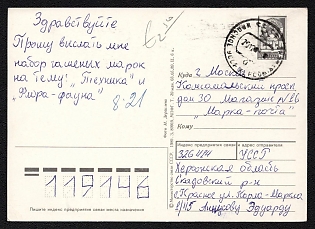 Здравствуйте
Прошу выслать мне
набор гашеных марок
на тему: "Техника" и
"Флора-фауна"
8.21
Куда г. Москва
Комсомольский просп.
дом 30 Магазин №26
"Марка-почта"
Кому
Индекс предприятия связи и адрес отправителя
326414 УССР
Херсонская область
Скадовский р-н
с. Красное ул. Карла-Маркса
Эдуарду
119146
Пишите индекс предприятия связи места назначения